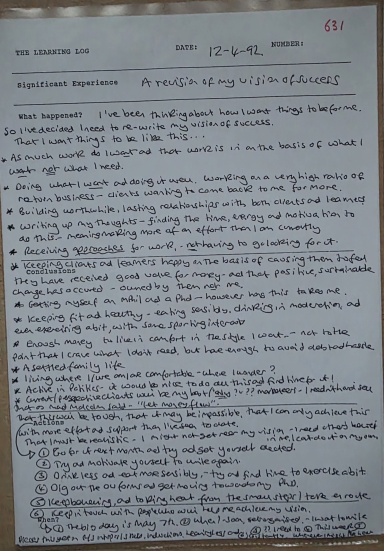 631
THE LEARNING LOG DATE: 12-4-92 NUMBER:
Significant Experience A revision of my vision of success
What happened? I've been thinking about how I want things to be for me.
So I've decided I need to re-write my vision of success.
That I want things to be like this...
* As much work as I want and that work is in on the basis of what I
want not what I need.
* Doing what I want and doing it well. Working on a very high ratio of
return business - clients wanting to come back to me for more.
* Building worthwhile, lasting relationships with both clients and learners
* Writing up my thoughts - finding the time, energy and motivation to
do this - meaning making more of an effort than I am currently
* Receiving approaches for work, not having to go looking for it.
* Keeping clients and learners happy on the basis of causing them to feel
Conclusions
they have received good value for money - and that positive, sustainable
change has occured - owned by them not me.
* Getting myself an MPhil and a PhD - however long this takes me.
* Keeping fit and healthy - eating sensibly, drinking in moderation, and
even exercising a bit, with some sporting interests
* Enough money to live in comfort in the style I want - not to the
point that I crave what I don't need, but have enough to avoid debt and hassle.
* A settled family life.
* Living where I / we am/are comfortable - where I wonder?
* Active in Politics - it would be nice to do all this and find time for it!
Actions
That this will be tough, that it may be impossible, that I can only achieve this
with more effort and support than I've seen to date.
That I must be realistic - I might not get near my vision - I need others
① Go for it next month and try and get yourself elected.
② Try and motivate yourself to write again.
③ Drink less and eat more sensibly, - try and find time to exercise a bit
④ Dig out the OU forms and get moving towards my PhD.
⑤ Keep believing, and taking heart from the small steps I take en route
⑥ Keep in touch with people who will help me achieve my vision.
When?
① The big day is May 7th.